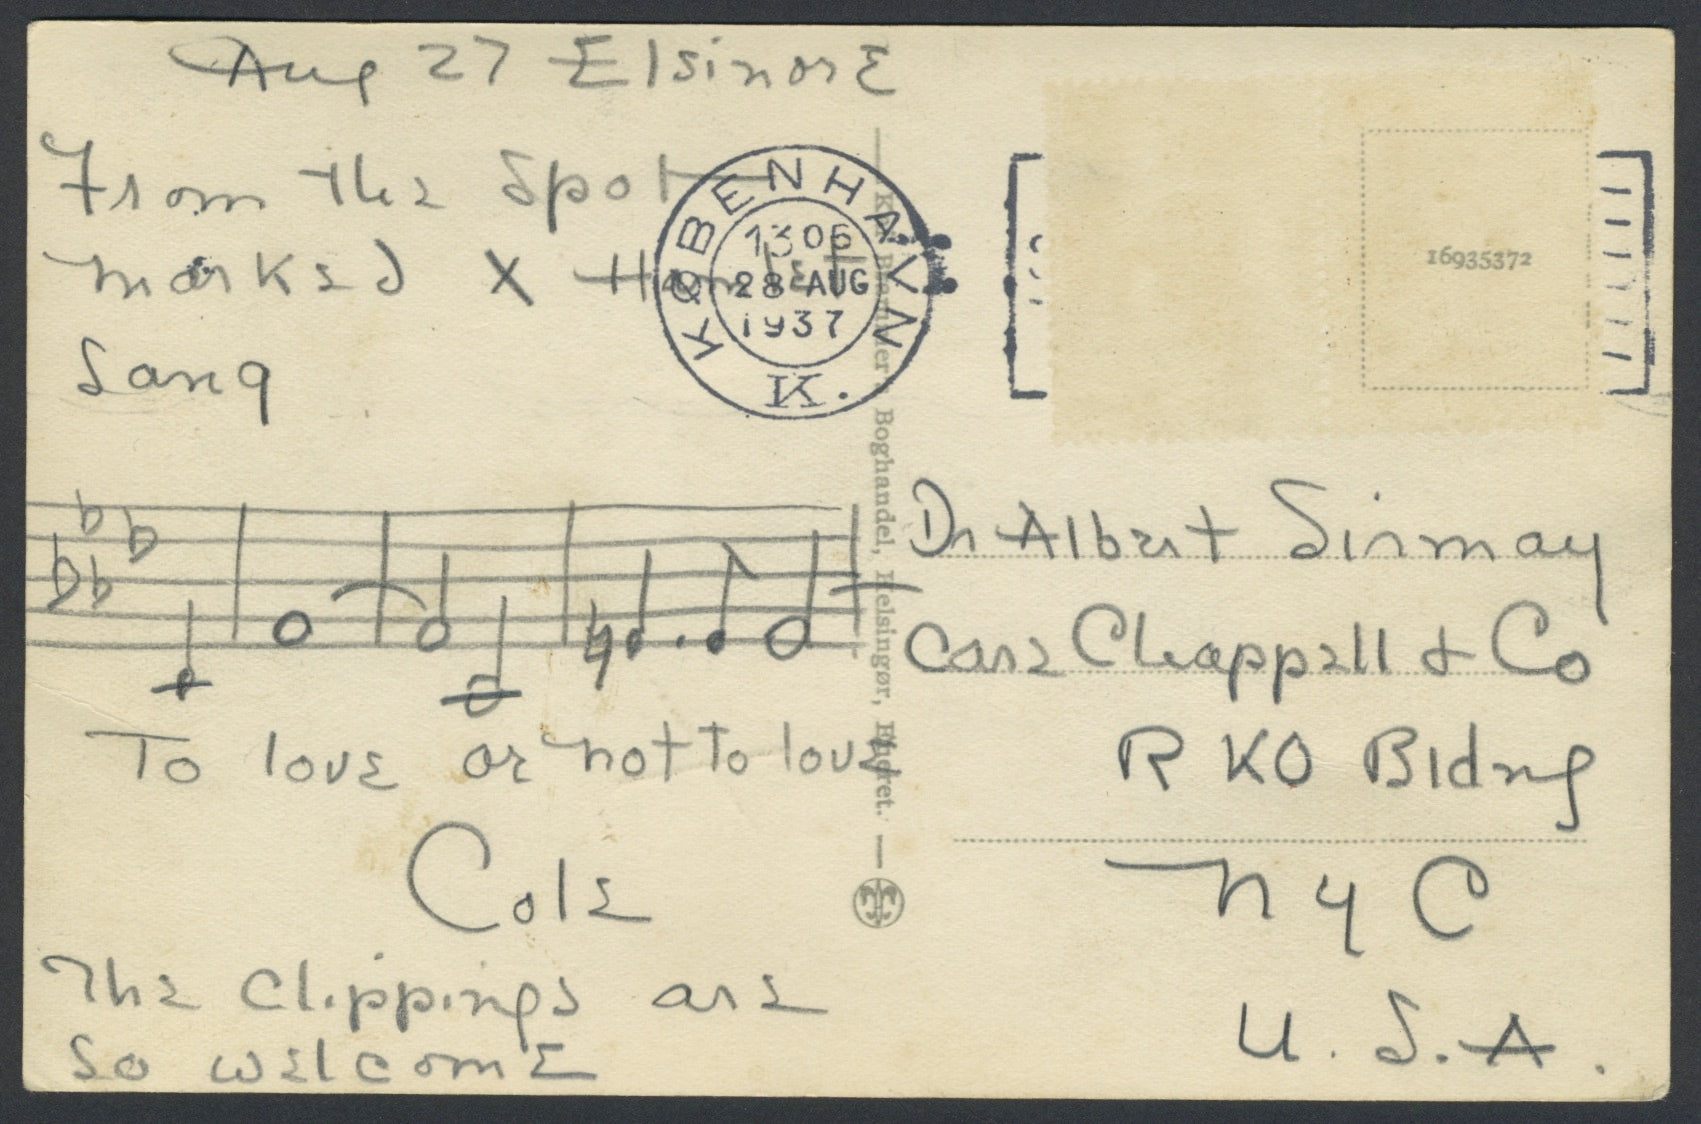 Aug 27 Elsinore
From the spot
marked X Hamlet
sang
To love or not to love
Cole
The clippings are
so welcome
KØBENHAVN
1306
28 AUG
1937
K.
Boghandel, Helsingør, Eneret.
16935372
Dr Albert Sirmay
Care Chappell & Co
RKO Bldng
NYC
U.S.A.